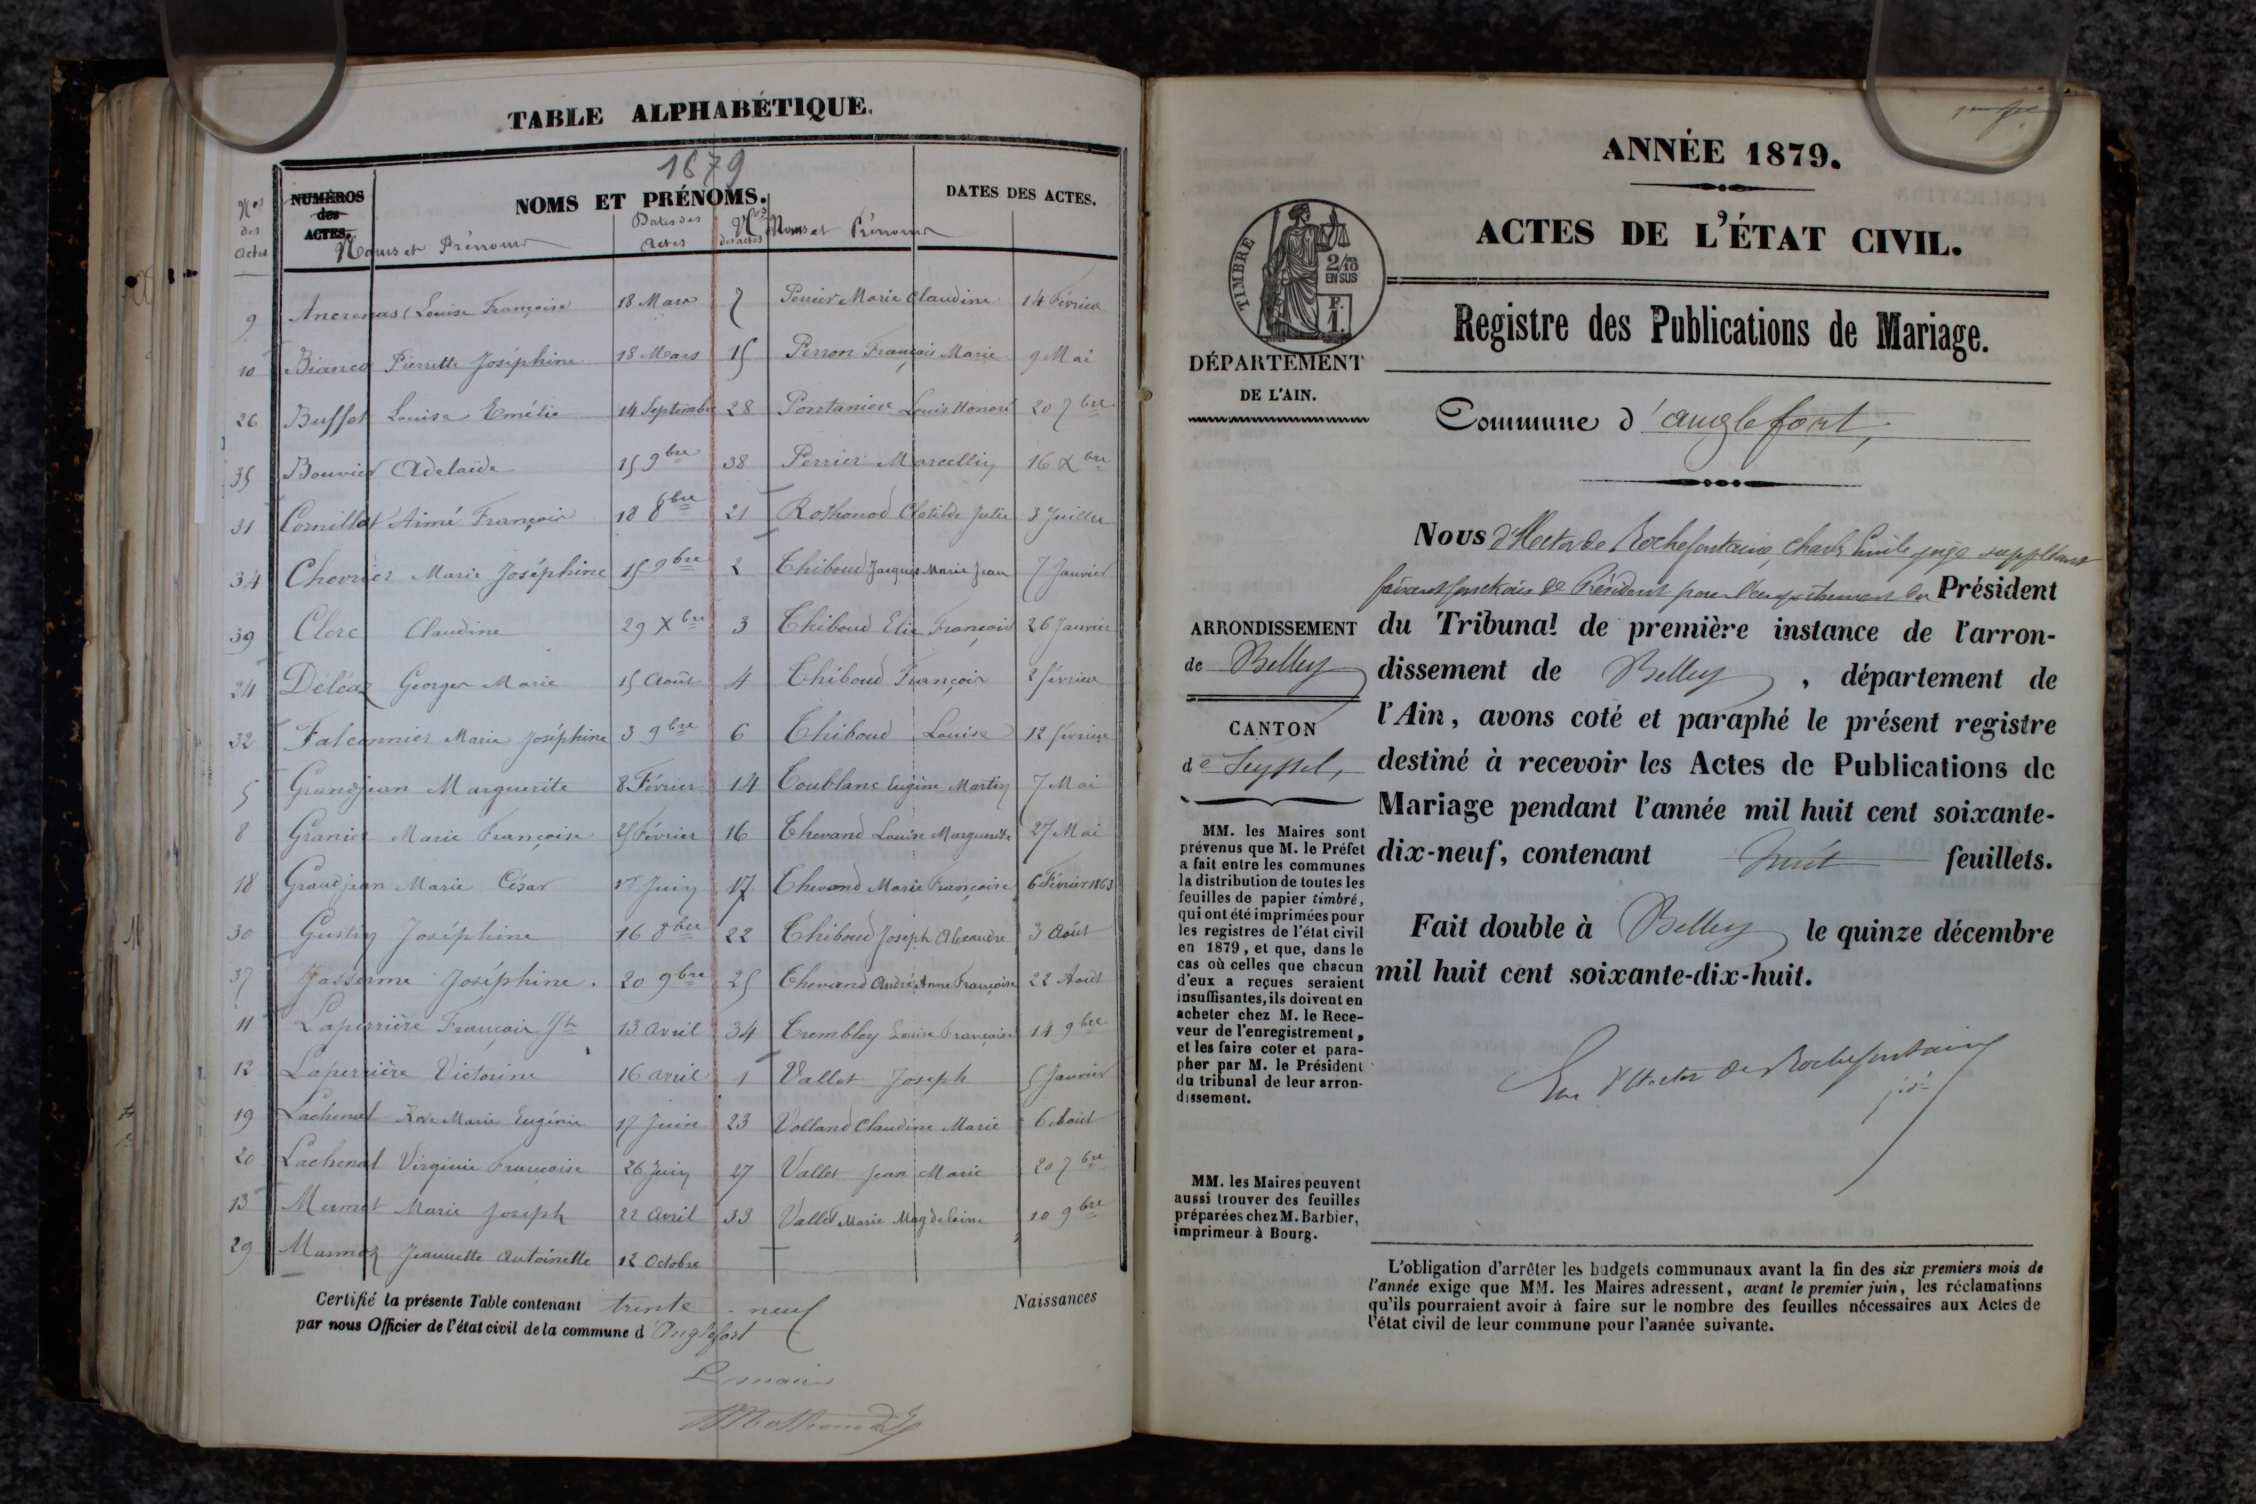 TABLE ALPHABÉTIQUE.
1879
NUMÉROS des ACTES.
NOMS ET PRÉNOMS.
DATES DES ACTES.
Nos des actes
Noms et Prénoms
Dates des Actes
Nos des actes
Noms et Prénoms
9 Louise Françoise 18 Mars 7 Perrier Marie Claudine 14 Février
10 Pierrette Joséphine 18 Mars 15 Perron François Marie 9 Mai
26 Buffet Louise Emélie 14 Septembre 28 Pontanier Louis Honoré 20 7bre
35 Bouvier Adelaïde 15 9bre 38 Perrier Marcellin 16 Xbre
31 Cornillot Aimé François 18 8bre 21 Clotilde Julie 3 Juillet
34 Chevrier Marie Joséphine 15 9bre 2 Thiboud Jacques Marie Jean 7 Janvier
39 Clerc Claudine 29 Xbre 3 Thiboud Elie François 26 Janvier
24 Déléaz Georges Marie 15 Août 4 Thiboud François 2 février
32 Falconnier Marie Joséphine 3 9bre 6 Thiboud Louise 12 février
5 Grandjean Marguerite 8 Février 14 Toublanc Eugène Martin 7 Mai
8 Granier Marie Françoise 25 Février 16 Thevand Louise Marguerite 27 Mai
18 Grandjean Marie César Juin 17 Thevand Marie Françoise 6 Février 1863
30 Gustin Joséphine 16 8bre 22 Thiboud Joseph Alexandre 3 Août
37 Joséphine 20 9bre 25 Thevand André Anne Françoise 22 Août
11 Laperrière François Jh 13 Avril 34 Trembley Louise Françoise 14 9bre
12 Laperrière Victorine 16 avril 1 Vallet Joseph 5 Janvier
19 Lachenal Rose Marie Eugénie 17 Juin 23 Volland Claudine Marie 6 Août
20 Lachenal Virginie Françoise 26 Juin 27 Vallet Jean Marie 20 7bre
13 Mermet Marie Joseph 22 Avril 33 Vallet Marie Magdeleine 10 9bre
29 Marmoz Jeannette Antoinette 12 Octobre
Certifié la présente Table contenant trente-neuf Naissances
par nous Officier de l'état civil de la commune d'Anglefort
Le maire
ANNÉE 1879.
ACTES DE L'ÉTAT CIVIL.
Registre des Publications de Mariage.
TIMBRE
2/10
EN SUS
F.
1.
DÉPARTEMENT
DE L'AIN.
Commune d'anglefort,
Nous d'Hector de Rochefontaine, Charles Emile juge suppléant
faisant fonctions de Président pour l'empêchement du Président
ARRONDISSEMENT
de Belley
du Tribunal de première instance de l'arron-
dissement de Belley, département de
l'Ain, avons coté et paraphé le présent registre
destiné à recevoir les Actes de Publications de
Mariage pendant l'année mil huit cent soixante-
dix-neuf, contenant huit feuillets.
Fait double à Belley le quinze décembre
mil huit cent soixante-dix-huit.
CANTON
de Seyssel,
MM. les Maires sont
prévenus que M. le Préfet
a fait entre les communes
la distribution de toutes les
feuilles de papier timbré,
qui ont été imprimées pour
les registres de l'état civil
en 1879, et que, dans le
cas où celles que chacun
d'eux a reçues seraient
insuffisantes, ils doivent en
acheter chez M. le Rece-
veur de l'enregistrement,
et les faire coter et para-
pher par M. le Président
du tribunal de leur arron-
dissement.
d'Hector de Rochefontaine
MM. les Maires peuvent
aussi trouver des feuilles
préparées chez M. Barbier,
imprimeur à Bourg.
L'obligation d'arrêter les budgets communaux avant la fin des six premiers mois de
l'année exige que MM. les Maires adressent, avant le premier juin, les réclamations
qu'ils pourraient avoir à faire sur le nombre des feuilles nécessaires aux Actes de
l'état civil de leur commune pour l'année suivante.